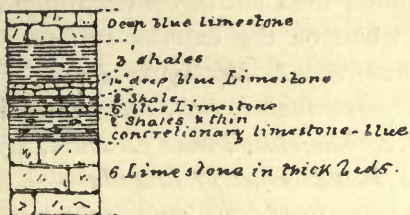 Deep blue limestone
3 shales
1½ deep blue Limestone
8 Shale
6 blue Limestone
8 shales & thin
concretionary limestone-blue
6 Limestone in thick beds.